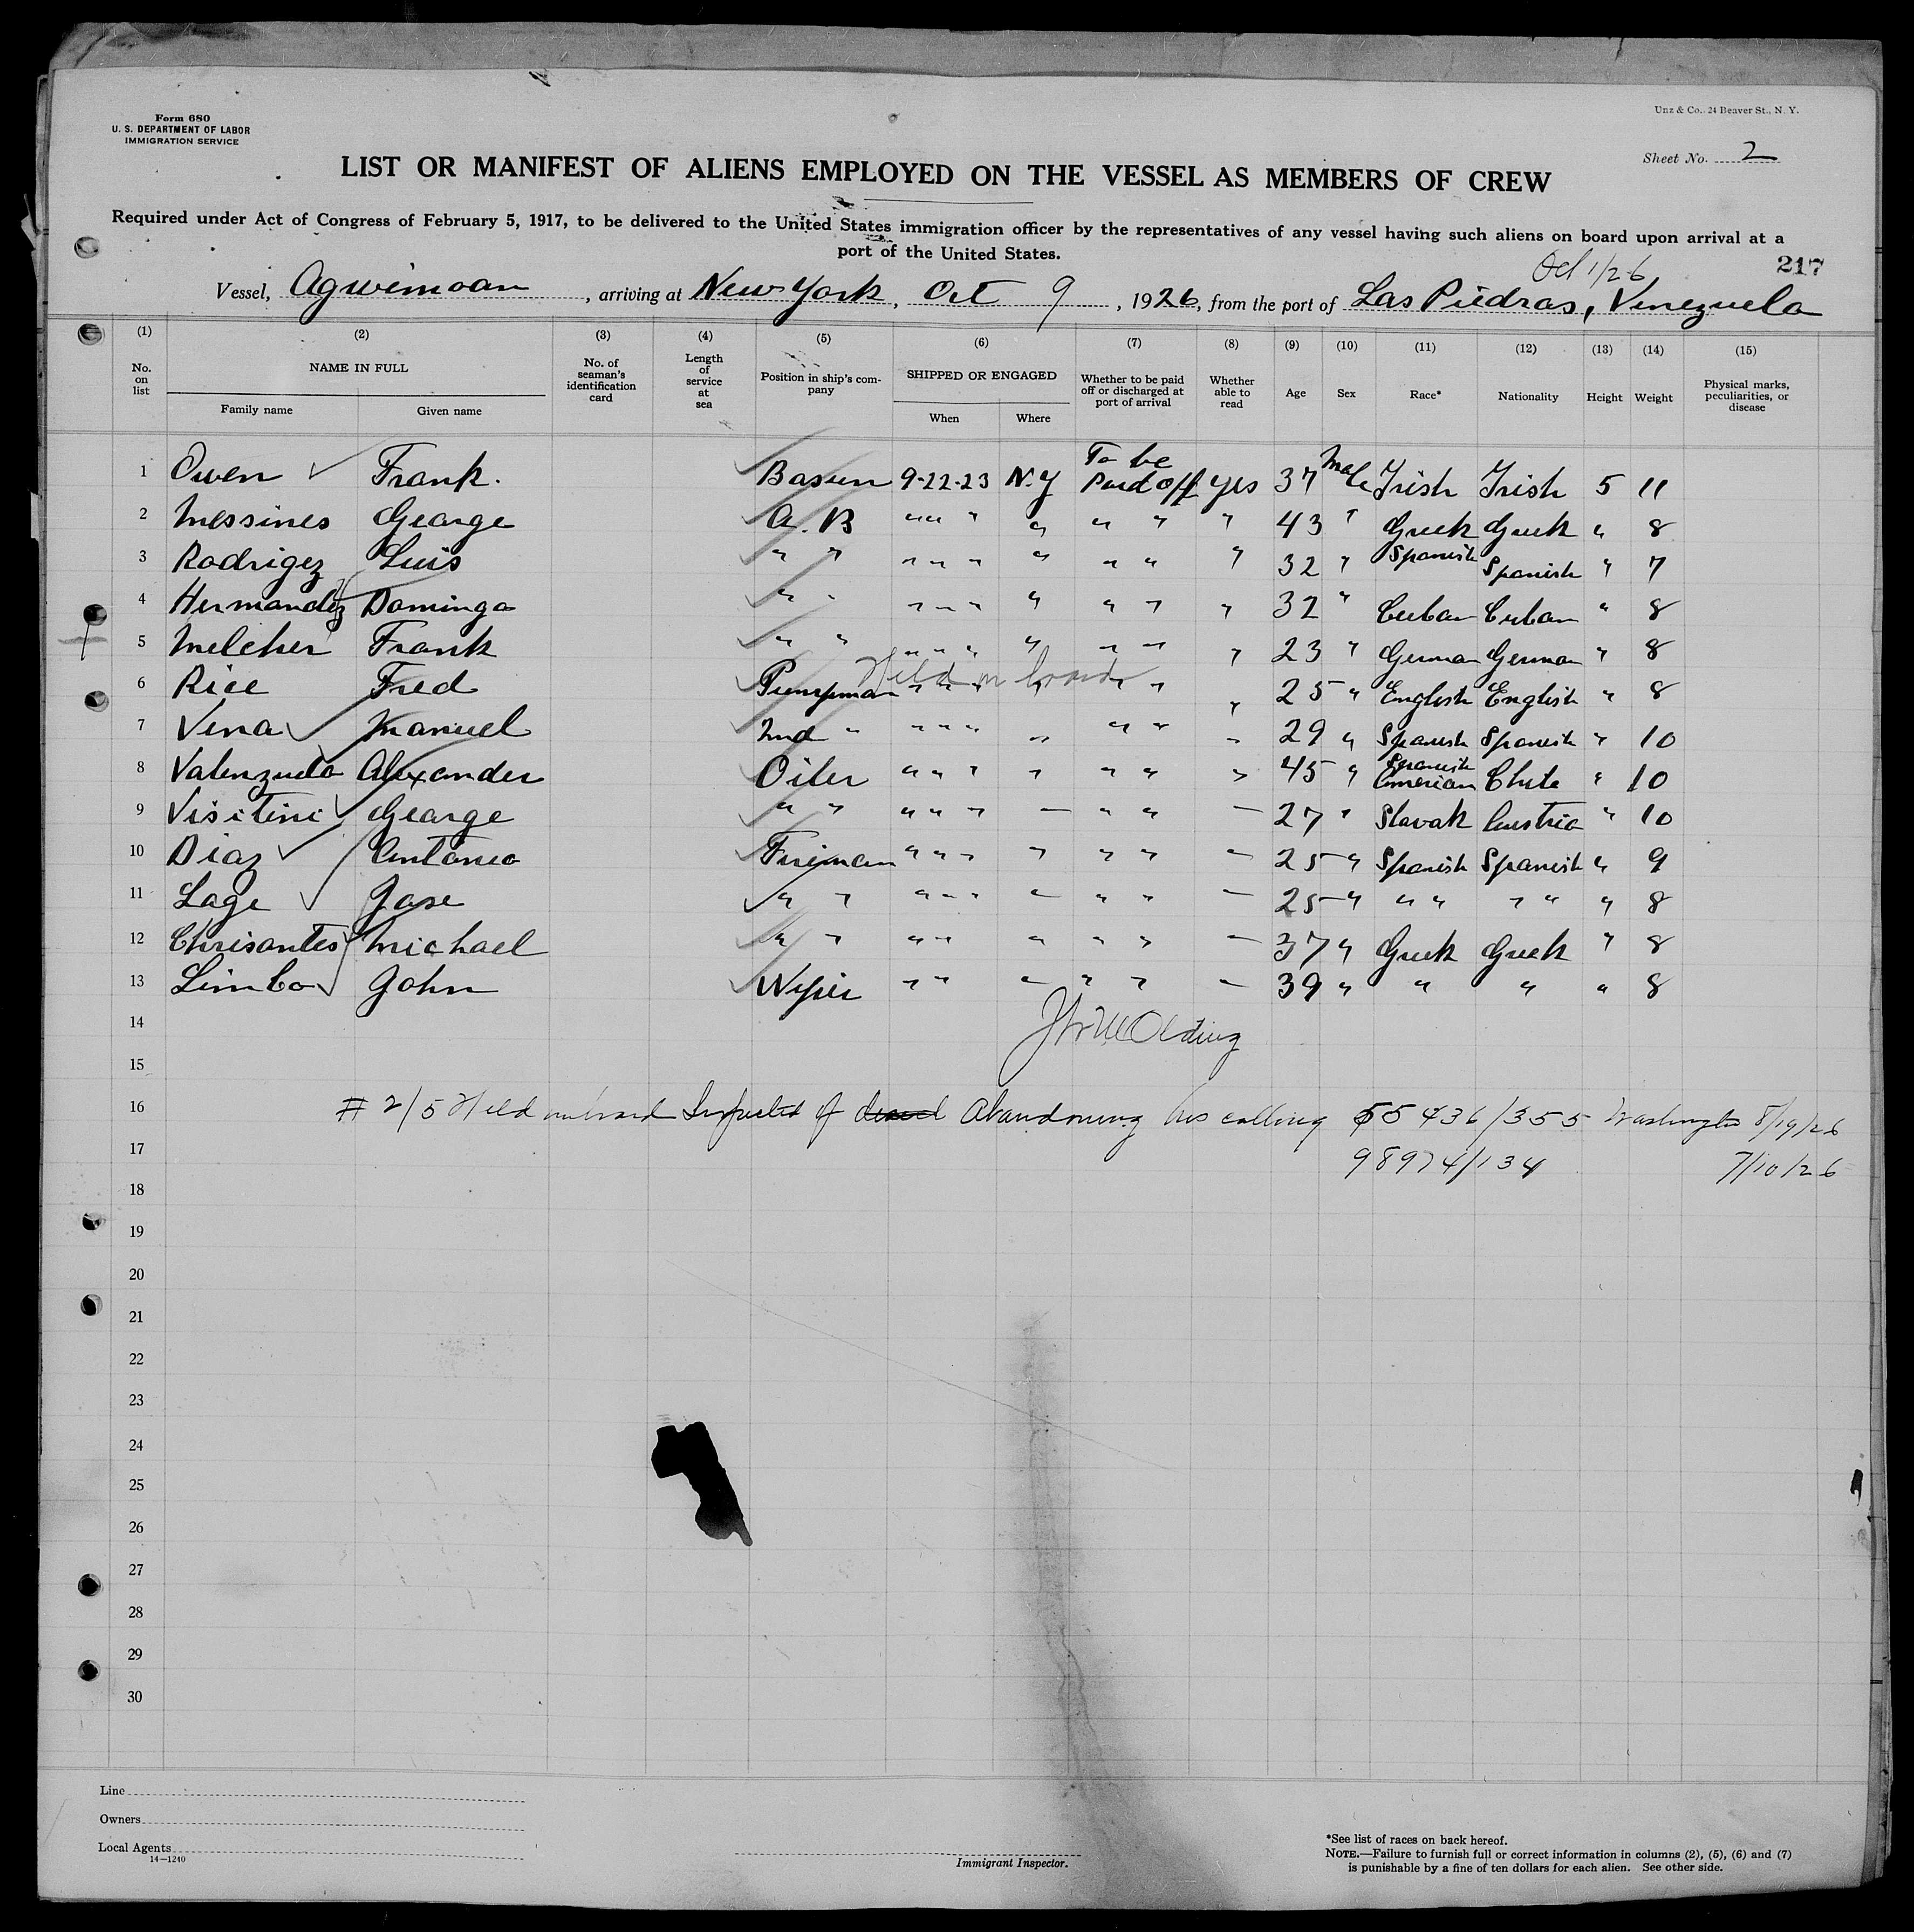 Form 680
U. S. DEPARTMENT OF LABOR
IMMIGRATION SERVICE
Unz & Co., 24 Beaver St., N. Y.
Sheet No. 2
LIST OR MANIFEST OF ALIENS EMPLOYED ON THE VESSEL AS MEMBERS OF CREW
Required under Act of Congress of February 5, 1917, to be delivered to the United States immigration officer by the representatives of any vessel having such aliens on board upon arrival at a
port of the United States.
Oct 1/26
217
Vessel, Agwimoan, arriving at New York, Oct 9, 1926, from the port of Las Piedras, Venezuela
(1) (2) (3) (4) (5) (6) (7) (8) (9) (10) (11) (12) (13) (14) (15)
No. on list NAME IN FULL Family name Given name No. of seaman's identification card Length of service at sea Position in ship's company SHIPPED OR ENGAGED When Where Whether to be paid off or discharged at port of arrival Whether able to read Age Sex Race* Nationality Height Weight Physical marks, peculiarities, or disease
1 Owen Frank. Bosun 9-22-23 N.Y To be Paid off Yes 37 Male Irish Irish 5 11
2 Messines George A. B " " " " " " " 43 " Greek Greek " 8
3 Rodrigez Luis " " " " " " " " " 32 " Spanish Spanish " 7
4 Hermandez Domingo " " " " " " " " " 32 " Cuban Cuban " 8
5 Melcher Frank " " " " " " " " " 23 " German German " 8
Held on board
6 Rice Fred Pumpman " " " " " " " 25 " English English " 8
7 Vena Manuel 2nd " " " " " " " " 29 " Spanish Spanish " 10
8 Valenzuela Alexander Oiler " " " " " " " 45 " Spanish American Chile " 10
9 Visitini George " " " " " " " " " 27 " Slovak Austria " 10
10 Diaz Antonio Fireman " " " " " " " 25 " Spanish Spanish " 9
11 Lage Jose " " " " " " " " " 25 " " " " " " 8
12 Chrisantes Michael " " " " " " " " 37 " Greek Greek " 8
13 Limbo John Wiper " " " " " " 39 " " " " 8
14
15
16 # 2/5 Held on board Suspected of Abandoning his calling 55436/355 Washington 8/19/26
17 98974/134 7/10/26
18
19
20
21
22
23
24
25
26
27
28
29
30
Line
Owners
Local Agents
14—1240
Immigrant Inspector.
*See list of races on back hereof.
NOTE.—Failure to furnish full or correct information in columns (2), (5), (6) and (7)
is punishable by a fine of ten dollars for each alien. See other side.